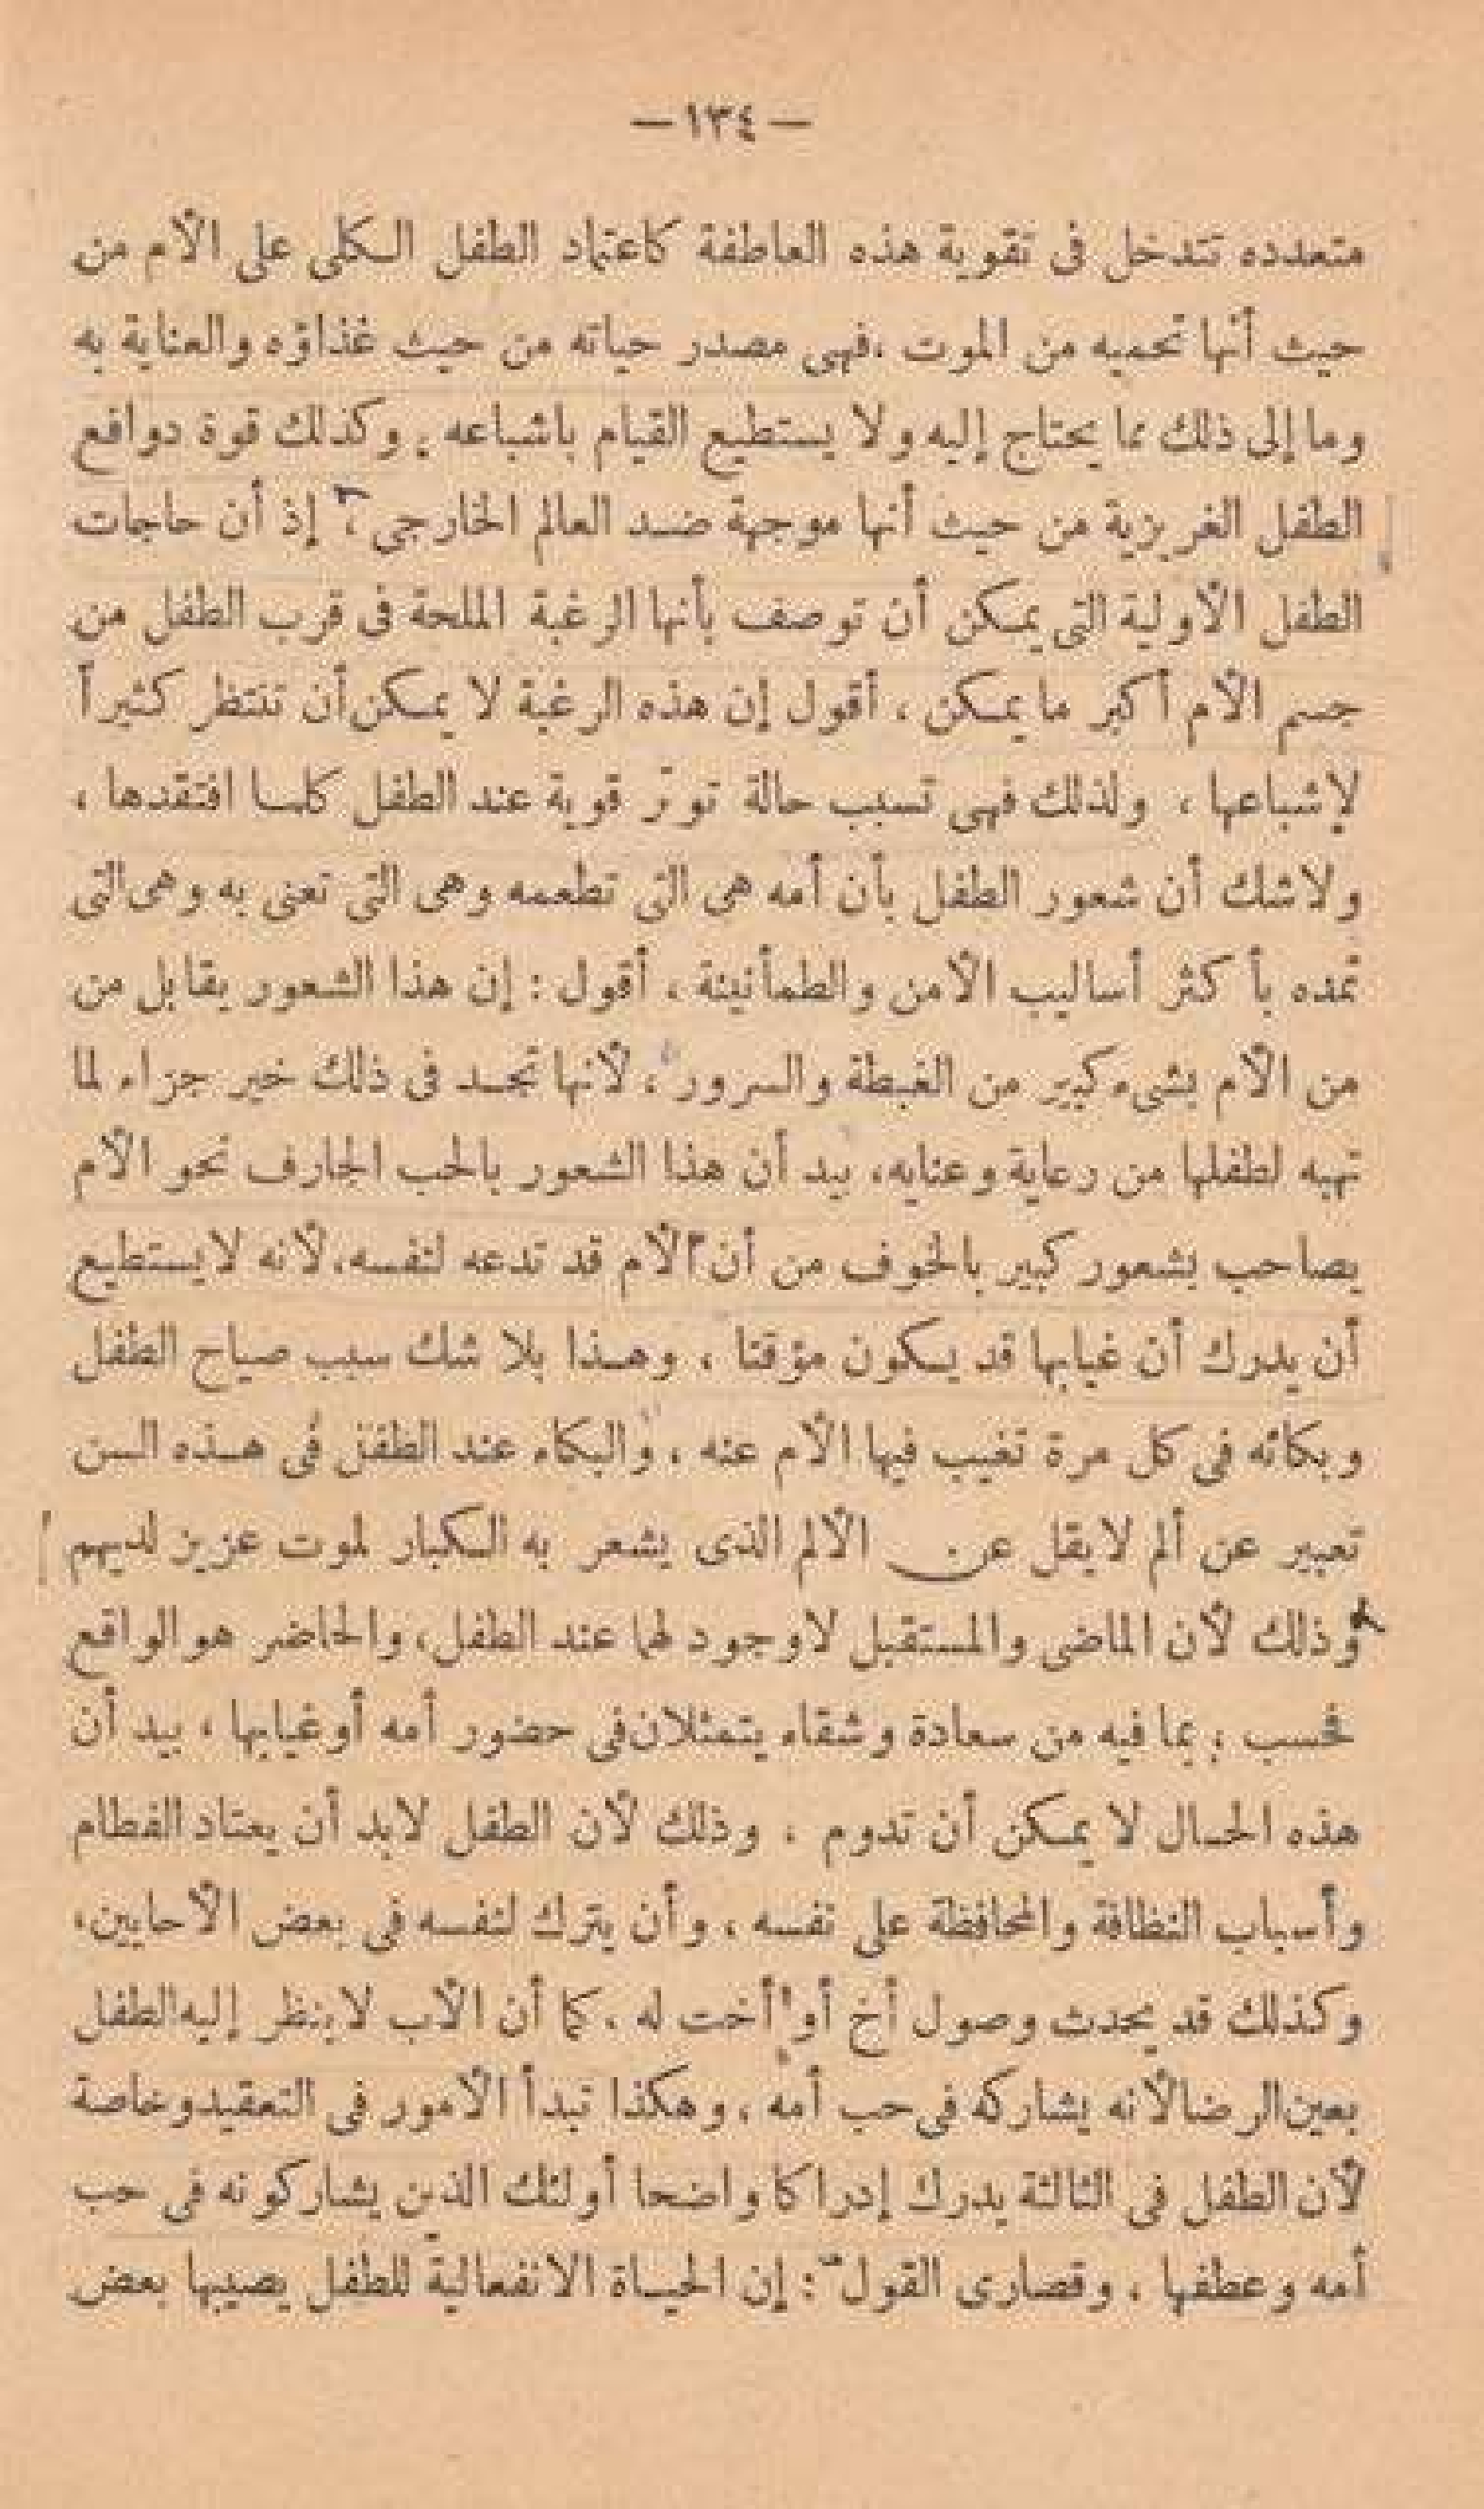 — ١٣٤ —
متعدده تتدخل فى تقوية هذه العاطفة كاعتماد الطفل الكلى على الأم من
حيث أنها تحميه من الموت ، فهى مصدر حياته من حيث غذاؤه والعناية به
وما إلى ذلك مما يحتاج إليه ولا يستطيع القيام باشباعه . وكذلك قوة دوافع
الطفل الغريزية من حيث أنها موجهة ضد العالم الخارجى ، إذ أن حاجات
الطفل الأولية التى يمكن أن توصف بأنها الرغبة الملحة فى قرب الطفل من
جسم الأم أكبر ما يمكن ، أقول إن هذه الرغبة لا يمكن أن تنتظر كثيراً
لإشباعها ، ولذلك فهى تسبب حالة توتر قوية عند الطفل كلما افتقدها ،
ولاشك أن شعور الطفل بأن أمه هى التى تطعمه وهى التى تعنى به وهى التى
تمده بأكثر أساليب الأمن والطمأنينة ، أقول : إن هذا الشعور يقابل من
من الأم بشىء كبير من الغبطة والسرور ، لأنها تجد فى ذلك خير جزاء لما
تهبه لطفلها من رعاية وعنايه، بيد أن هذا الشعور بالحب الجارف نحو الأم
يصاحب بشعور كبير بالخوف من أن الأم قد تدعه لنفسه، لأنه لا يستطيع
أن يدرك أن غيابها قد يكون مؤقتا ، وهذا بلا شك سبب صياح الطفل
وبكائه فى كل مرة تغيب فيها الأم عنه ، والبكاء عند الطفل فى هذه السن
تعبير عن ألم لا يقل عن الألم الذى يشعر به الكبار لموت عزيز لديهم
وذلك لأن الماضى والمستقبل لا وجود لهما عند الطفل، والحاضر هو الواقع
فحسب ؛ بما فيه من سعادة وشقاء يتمثلان فى حضور أمه أو غيابها ، بيد أن
هذه الحال لا يمكن أن تدوم ، وذلك لأن الطفل لابد أن يعتاد الفطام
وأسباب النظافة والمحافظة على نفسه ، وأن يترك لنفسه فى بعض الأحايين،
وكذلك قد يحدث وصول أخ أو أخت له ، كما أن الأب لا ينظر إليه الطفل
بعين الرضا لأنه يشاركه فى حب أمه ، وهكذا تبدأ الأمور فى التعقيد وخاصة
لأن الطفل فى الثالثة يدرك إدراكا واضحا أولئك الذين يشاركونه فى حب
أمه وعطفها . وقصارى القول : إن الحياة الانفعالية للطفل يصيبها بعض